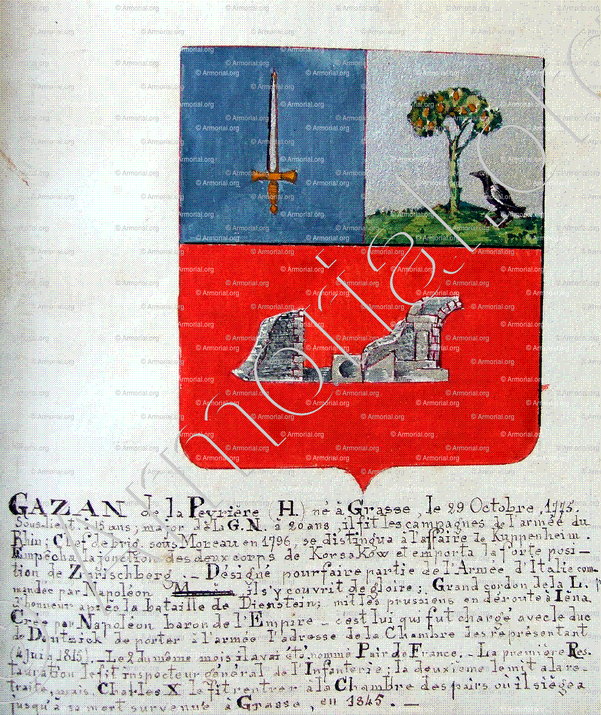 GAZAN de la Peyrière (H.) né à Grasse, le 29 Octobre, 1775.
Sous-lieut. à 15 ans; major de la G.N. à 20 ans, il fit les campagnes de l'armée du
Rhin; Chef de brig. sous Moreau en 1796, se distingua à l'affaire de Kuppenheim.
Empêcha la jonction des deux corps de Korsakow et emporta la forte posi-
tion de Zurischberg. — Désigné pour faire partie de l'Armée d'Italie com-
mandée par Napoléon il s'y couvrit de gloire; Grand cordon de la L.
d'honneur après la bataille de Dienstein; mit les prussiens en déroute à Iéna
Créé par Napoléon baron de l'Empire — c'est lui qui fut chargé avec le duc
de Dantzick de porter à l'armée l'adresse de la Chambre des représentant
(4 juil. 1815). — Le 2 du même mois il avait été nommé Pair de France. — La première Res-
tauration le fit inspecteur général de l'Infanterie; la deuxième le mit à la re-
traite, mais Charles X le fit rentrer à la Chambre des pairs où il siégea
jusqu'à sa mort survenue à Grasse, en 1845. —